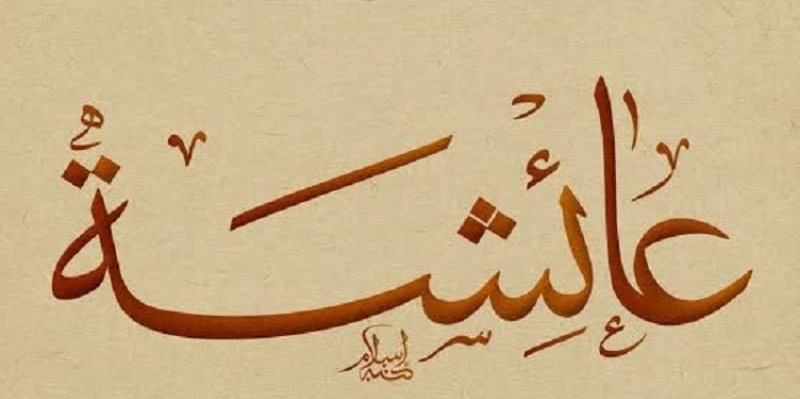 عائِشَة
كتبه إسلام